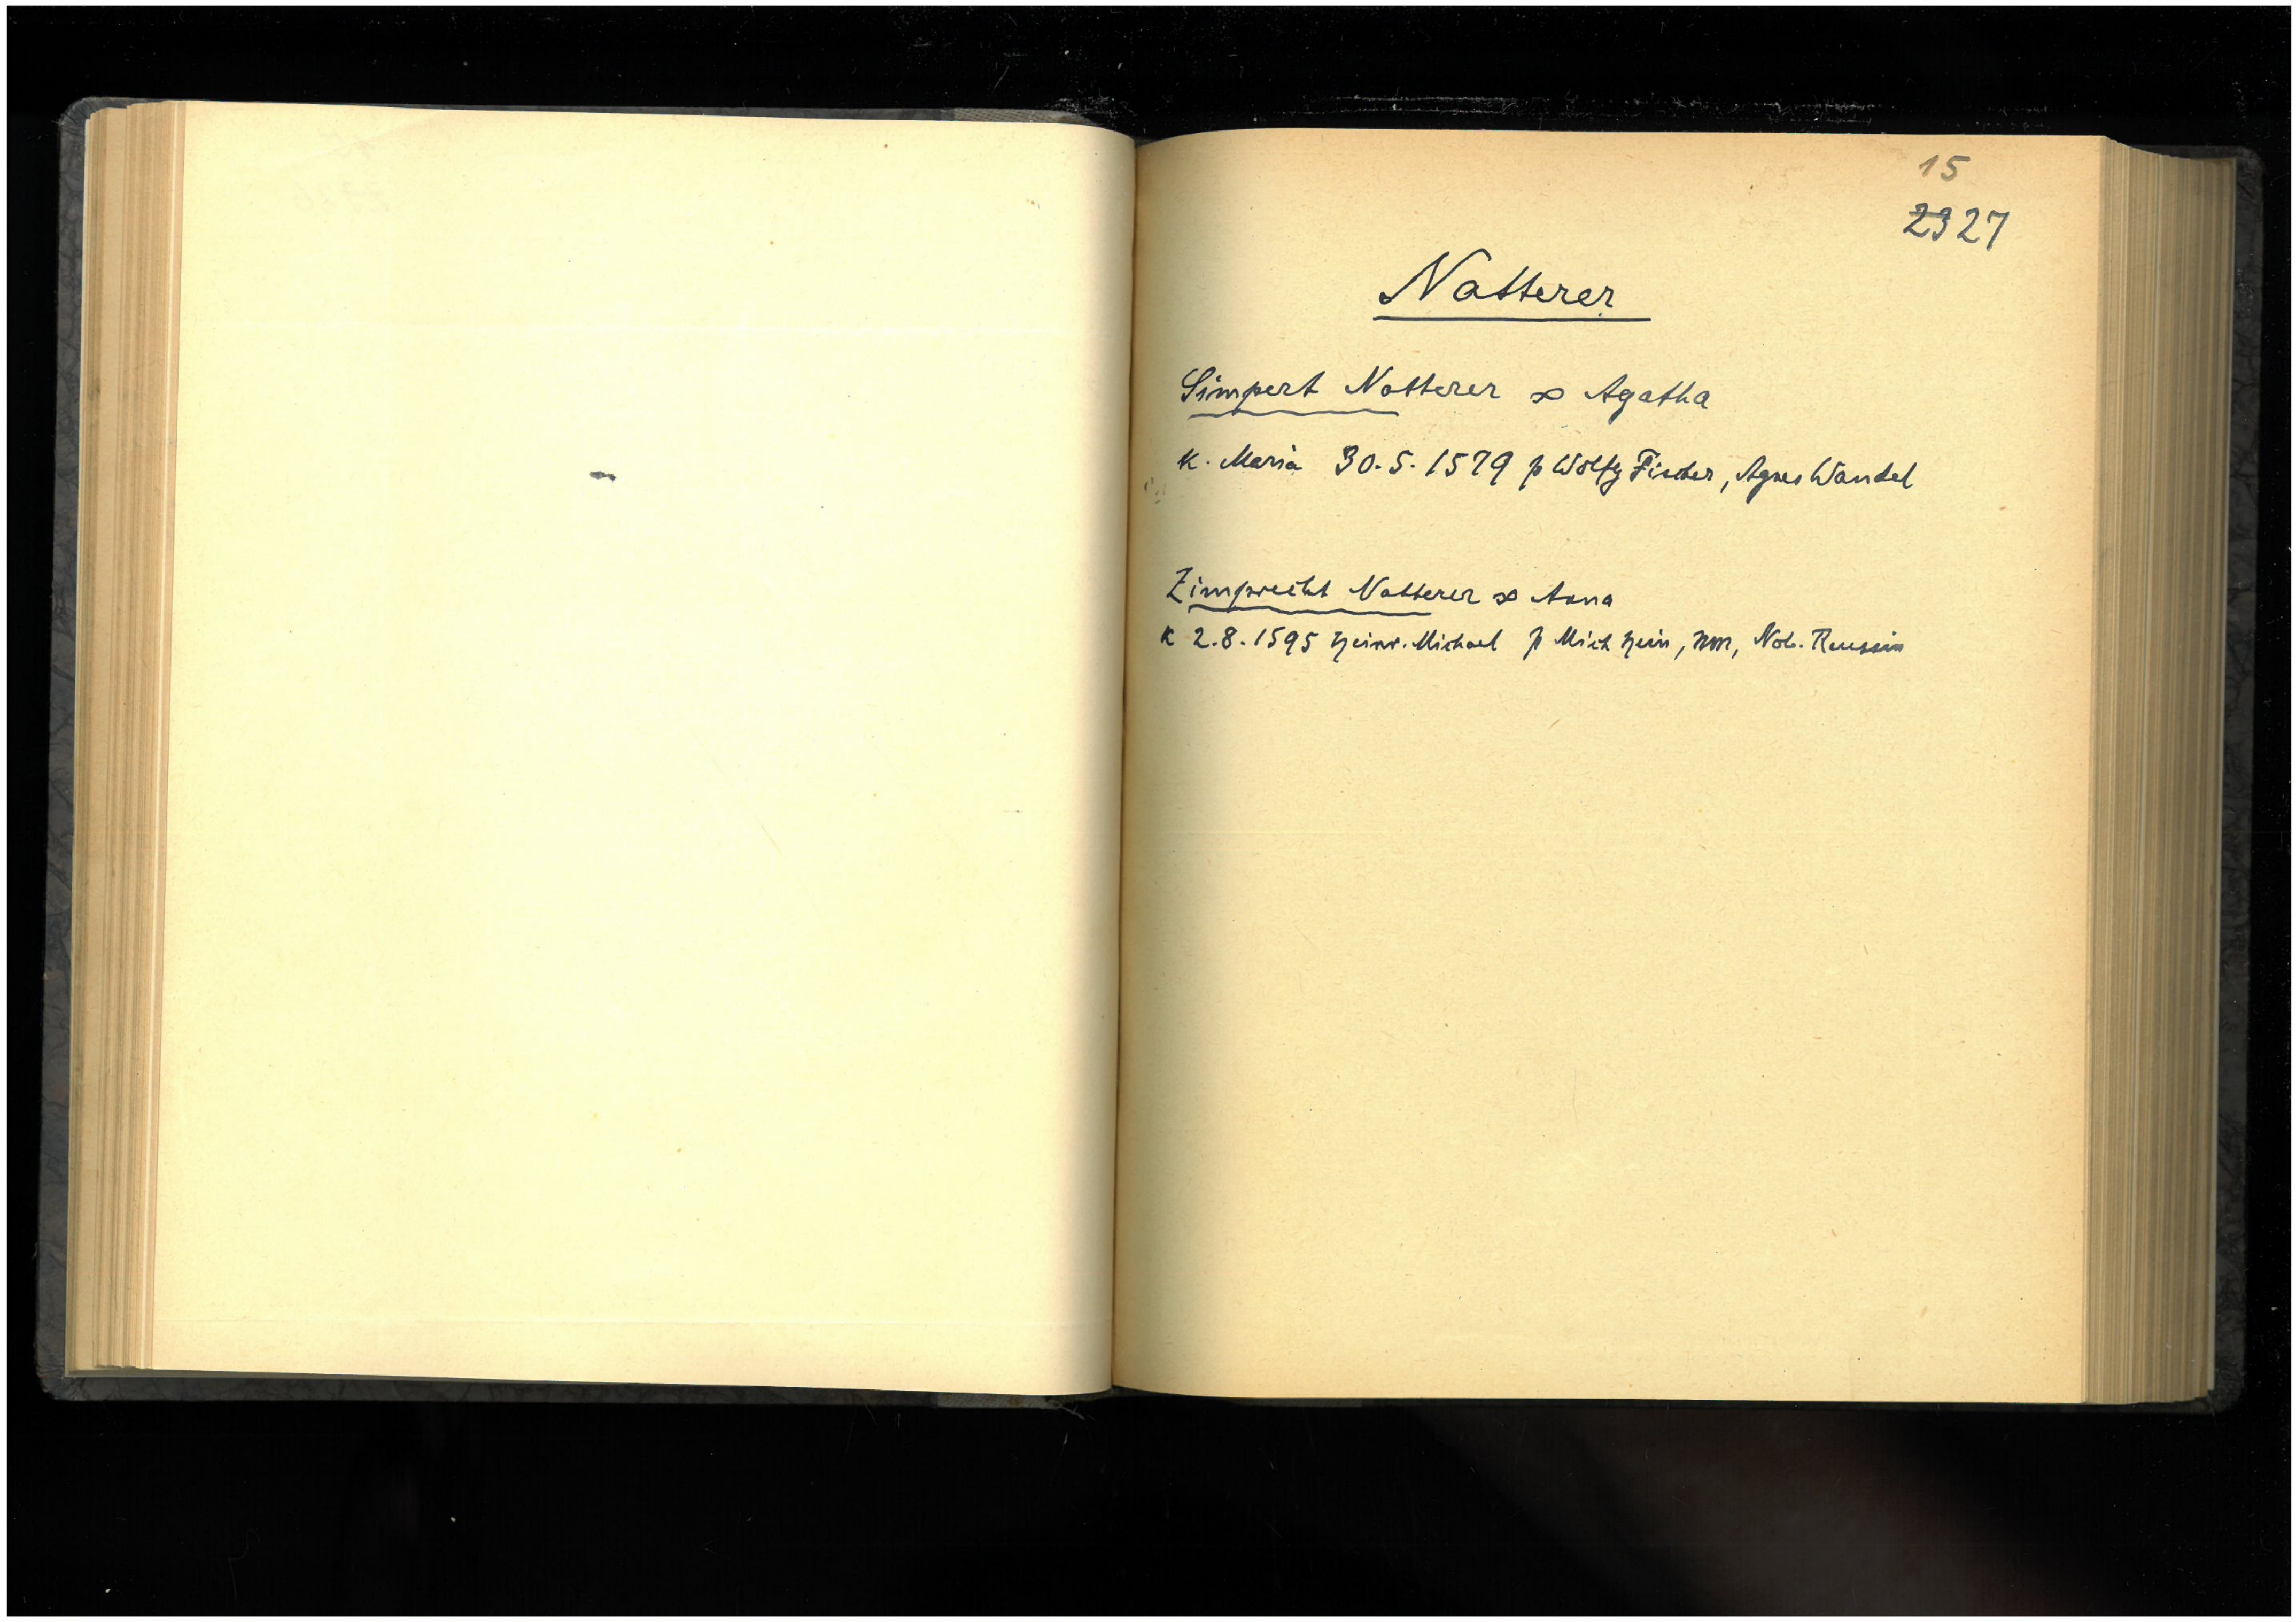 15
2327
Natterer
Simpert Natterer ∞ Agatha
K. Maria 30.5.1579 p Wolfg Fischer, Agnes Wandel
Zimprecht Natterer ∞ Anna
K 2.8.1595 Heinr. Michael p Mich Hein, NN, Nob. Reussin